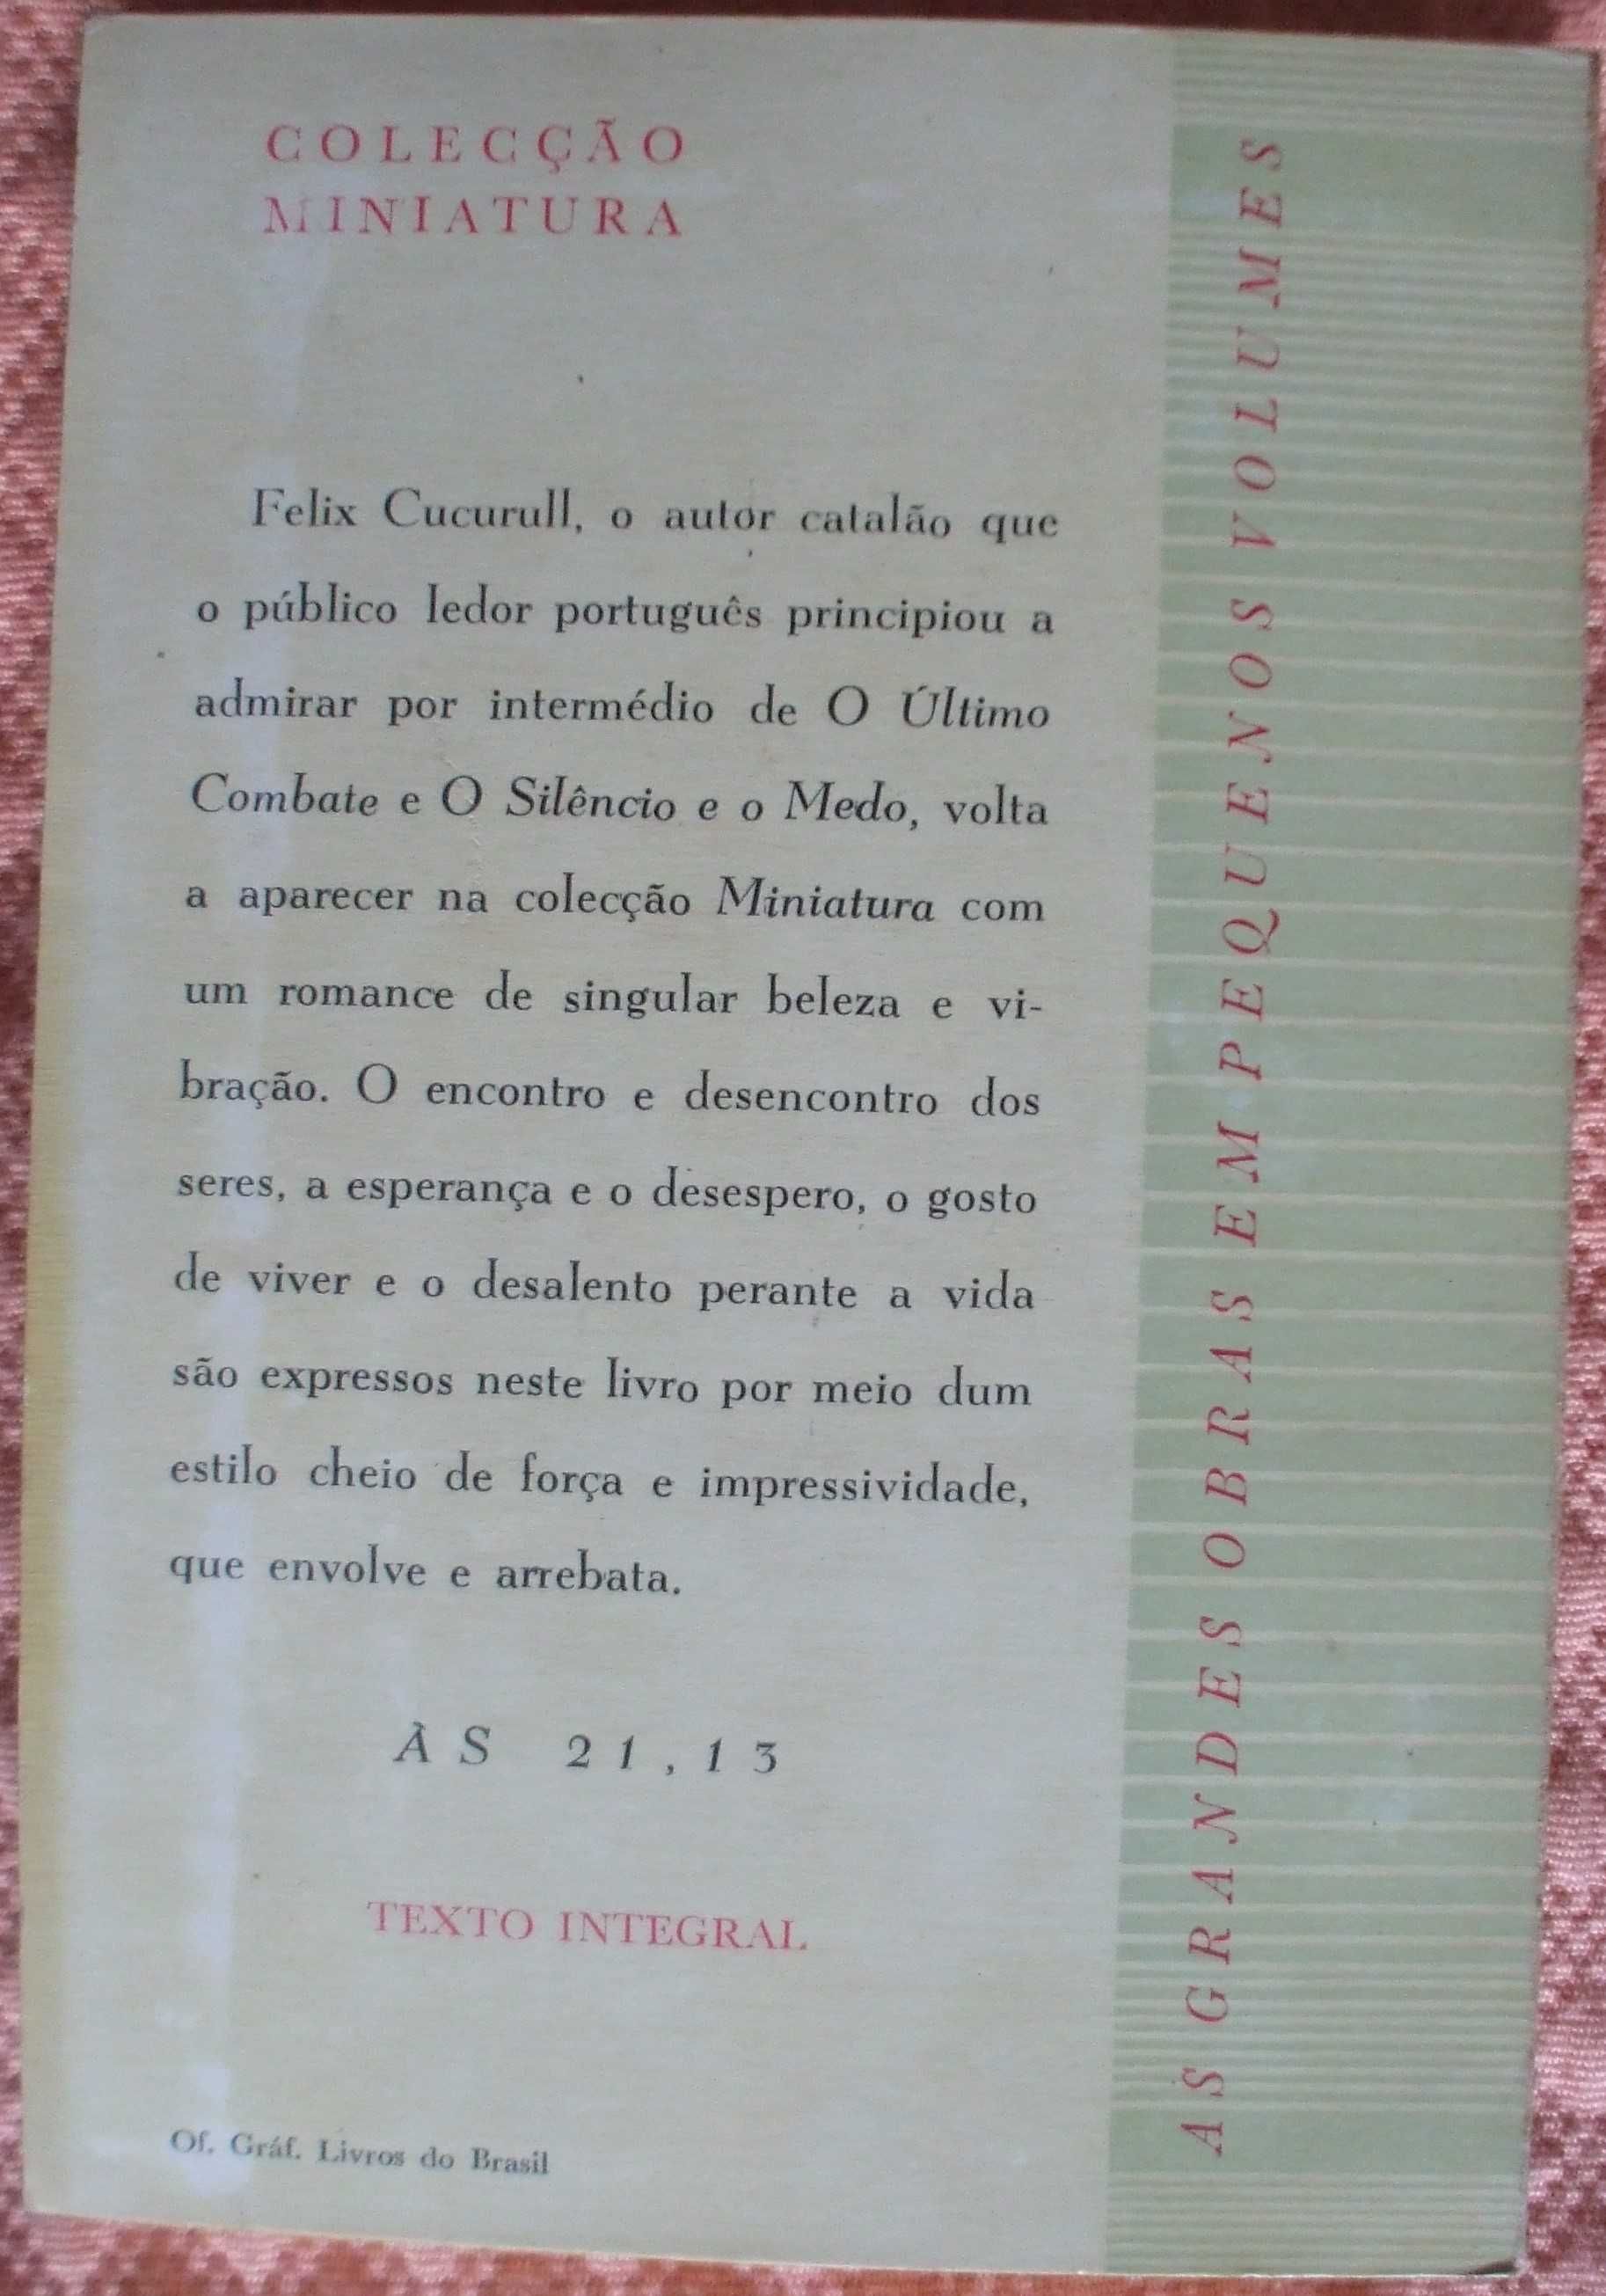 COLECÇÃO
MINIATURA
Felix Cucurull, o autor catalão que
o público ledor português principiou a
admirar por intermédio de O Último
Combate e O Silêncio e o Medo, volta
a aparecer na colecção Miniatura com
um romance de singular beleza e vi-
bração. O encontro e desencontro dos
seres, a esperança e o desespero, o gosto
de viver e o desalento perante a vida
são expressos neste livro por meio dum
estilo cheio de força e impressividade,
que envolve e arrebata.
ÀS 21,13
TEXTO INTEGRAL
Of. Gráf. Livros do Brasil
AS GRANDES OBRAS EM PEQUENOS VOLUMES